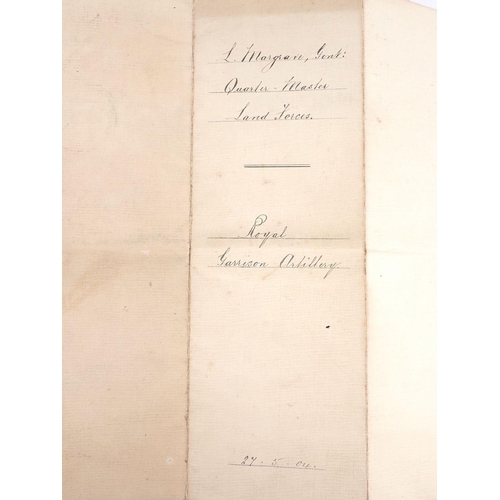 L. Margrave, Gent:
Quarter-Master
Land Forces.
Royal
Garrison Artillery.
27-5-04.